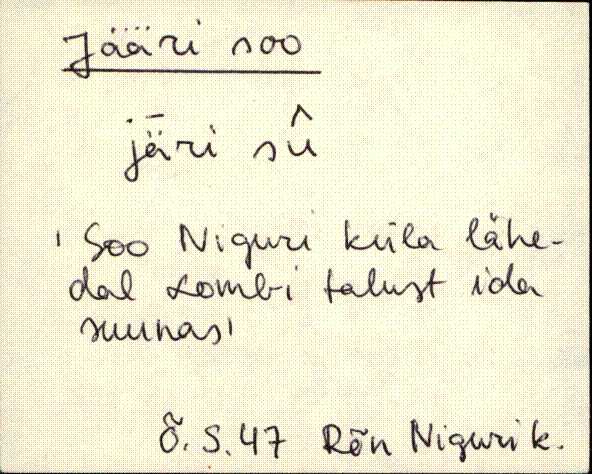 Jääri soo
jǟri sû
' Soo Niguri küla lähe-
dal Lombi talust ida
suunas'
Õ.S.47 Rõn Niguri k.